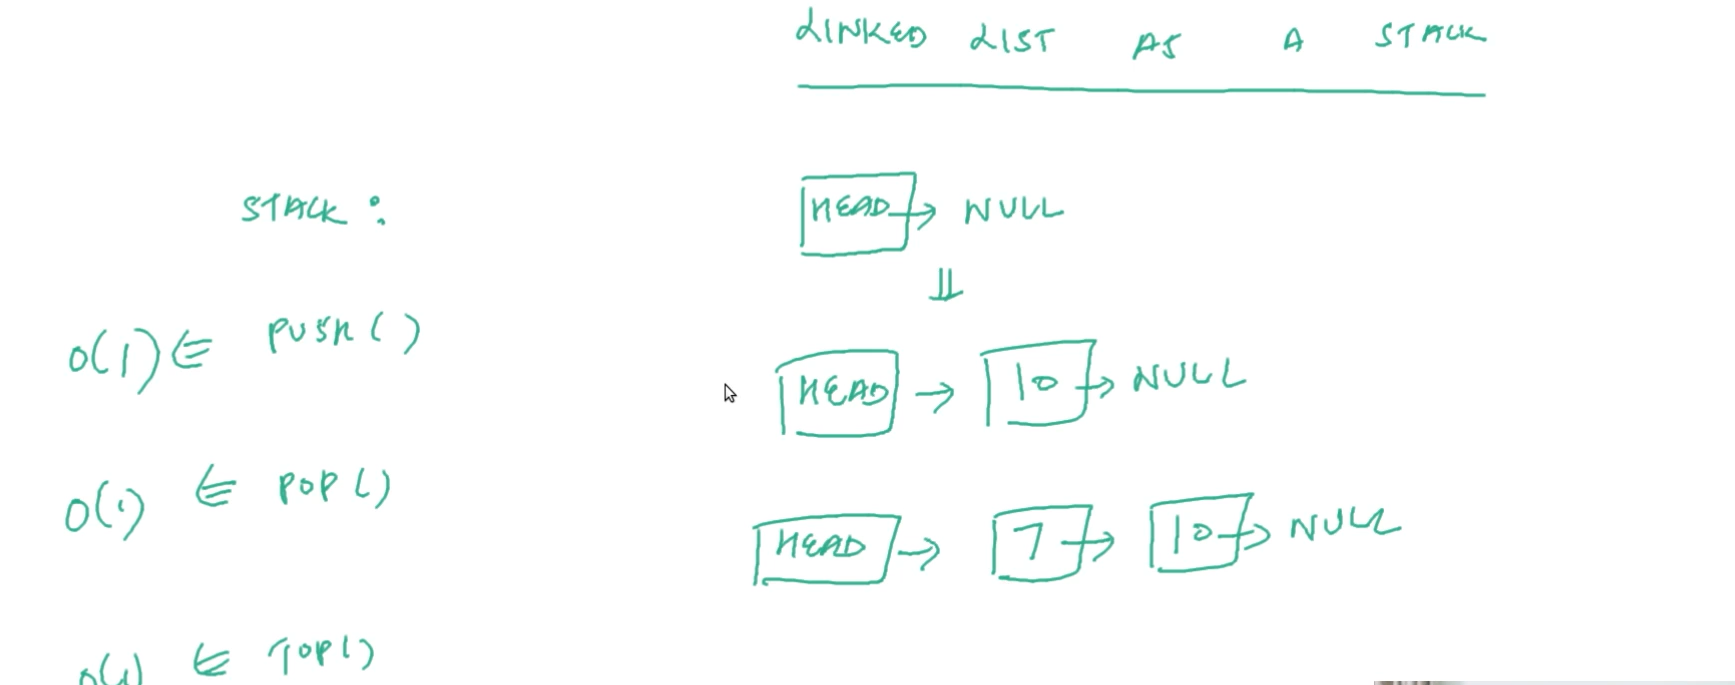 LINKED LIST AS A STACK
STACK :
O(1) ⋲ PUSH ( )
O(1) ⋲ POP ( )
O(1) ⋲ TOP ( )
HEAD → NULL
⇓
HEAD → 10 → NULL
HEAD → 7 → 10 → NULL